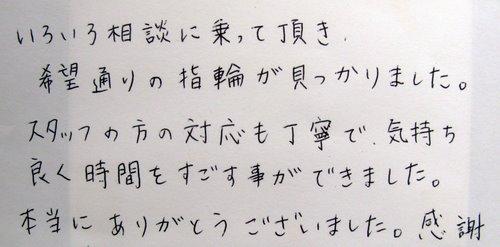 いろいろ相談に乗って頂き、
希望通りの指輪が見つかりました。
スタッフの方の対応も丁寧で、気持ち
良く時間をすごす事ができました。
本当にありがとうございました。感謝